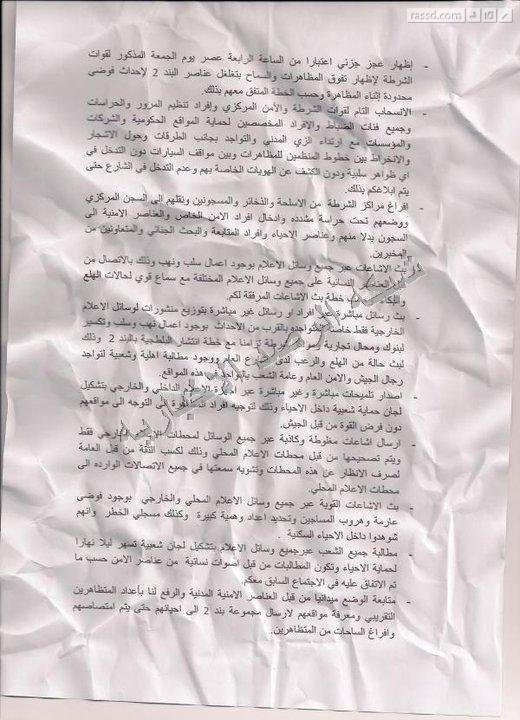 rassd.com
- إظهار عجز جزئي اعتبارا من الساعة الرابعة عصر يوم الجمعة المذكور لقوات
الشرطة لإظهار تفوق المظاهرات والسماح بتغلغل عناصر البند 2 لإحداث فوضى
محدودة إثناء المظاهرة وحسب الخطة المتفق معهم بذلك.
- الانسحاب التام لقوات الشرطة والأمن المركزي وإفراد تنظيم المرور والحراسات
وجميع فئات الضباط والإفراد المخصصين لحماية المواقع الحكومية والشركات
والمؤسسات مع ارتداء الزي المدني والتواجد بجانب الطرقات وحول الاشجار
والانخراط بين خطوط المنظمين للمظاهرات وبين مواقف السيارات دون التدخل في
اي ظواهر سلبية ودون الكشف عن الهويات الخاصة بهم وعدم التدخل في الشارع حتى
يتم ابلاغكم بذلك.
- افراغ مراكز الشرطة من الاسلحة والذخائر والمسجونين ونقلهم الى السجن المركزي
ووضعهم تحت حراسة مشدده وادخال افراد الامن الخاص والعناصر الامنية الى
السجون بدلا منهم وعناصر الاحياء وافراد المتابعة والبحث الجنائي والمتعاونين من
المخبرين.
- بث الاشاعات عبر جميع وسائل الاعلام بوجود اعمال سلب ونهب وذلك بالاتصال من
العناصر النسائية على جميع وسائل الاعلام المختلفة مع سماع قوي لحالات الهلع
والبكاء خطة بث الاشاعات المرفقة لكم.
- بث رسائل مباشرة عبر افراد او رسائل غير مباشرة بتوزيع منشورات لوسائل الاعلام
الخارجية فقط خاصة بالقرب من الاحداث بوجود اعمال نهب وسلب وتكسير
لبنوك ومحال تجارية شرطة تزامنا مع خطة انتشار البلطجية بالبند 2 وذلك
لبث حالة من الهلع والرعب لدى الشارع العام ووجود مطالبة اهلية وشعبية لتواجد
رجال الجيش والامن العام وعامة الشعب في هذه المواقع.
- اصدار تلميحات مباشرة وغير مباشرة عبر الاعلام الداخلي والخارجي بتشكيل
لجان حماية شعبية داخل الاحياء وذلك لتوجيه افراد التوجه الى مواقعهم
دون فرض القوة من قبل الجيش.
- ارسال اشاعات مغلوطة وكاذبة عبر جميع الوسائل لمحطات الخارجي فقط
ويتم تصحيحها من قبل محطات الاعلام المحلي وذلك لكسب الثقة من قبل العامة
لصرف الانظار عن هذه المحطات وتشويه سمعتها في جميع الاتصالات الوارده الى
محطات الاعلام المحلي.
- بث الاشاعات القوية عبر جميع وسائل الاعلام المحلي والخارجي بوجود فوضى
عارمة وهروب المساجين وتحديد اعداد وهمية كبيرة وكذلك مسجلي الخطر وانهم
شوهدوا داخل الاحياء السكنية.
- مطالبة جميع الشعب عبرجميع وسائل الاعلام بتشكيل لجان شعبية تسهر ليلا نهارا
لحماية الاحياء وتكون المطالبات من قبل أصوات نسائية من عناصر الامن حسب ما
تم الاتفاق عليه في الاجتماع السابق معكم.
- متابعة الوضع ميدانيا من قبل العناصر الامنية المدنية والرفع لنا بأعداد المتظاهرين
التقريبي ومعرفة مواقعهم لارسال مجموعة بند 2 الى احيائهم حتى يتم امتصاصهم
وافراغ الساحات من المتظاهرين.